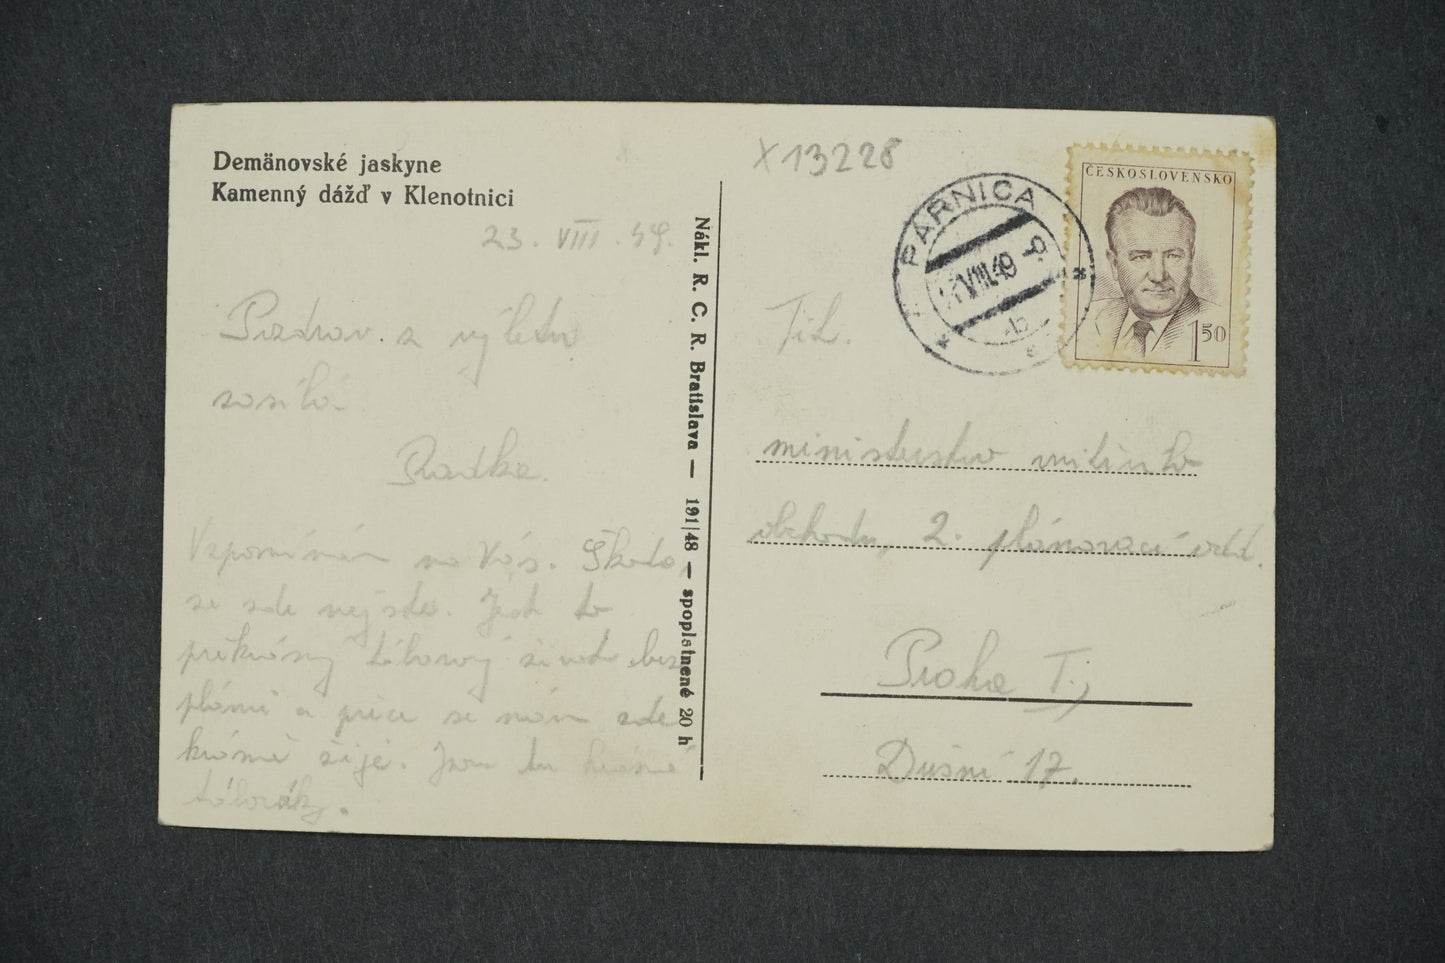 Demänovské jaskyne
Kamenný dážď v Klenotnici
23. VIII. 49.
Pozdrav z výletu
zasílá
Radka.
Vzpomínám na Vás. Škoda,
že zde nejste. Jest to
překrásný táborový život bez
plánů a práce se nám zde
krásně žije. Jsou tu krásné
Nákl. R. C. R. Bratislava — 191/48 — spoplatnené 20 h
X 13228
PÁRNICA
VIII.49
ČESKOSLOVENSKO
1 50
Tit.
ministerstvo vnitního
obchodu, 2. plánovací odd.
Praha I.,
Dušní 17.